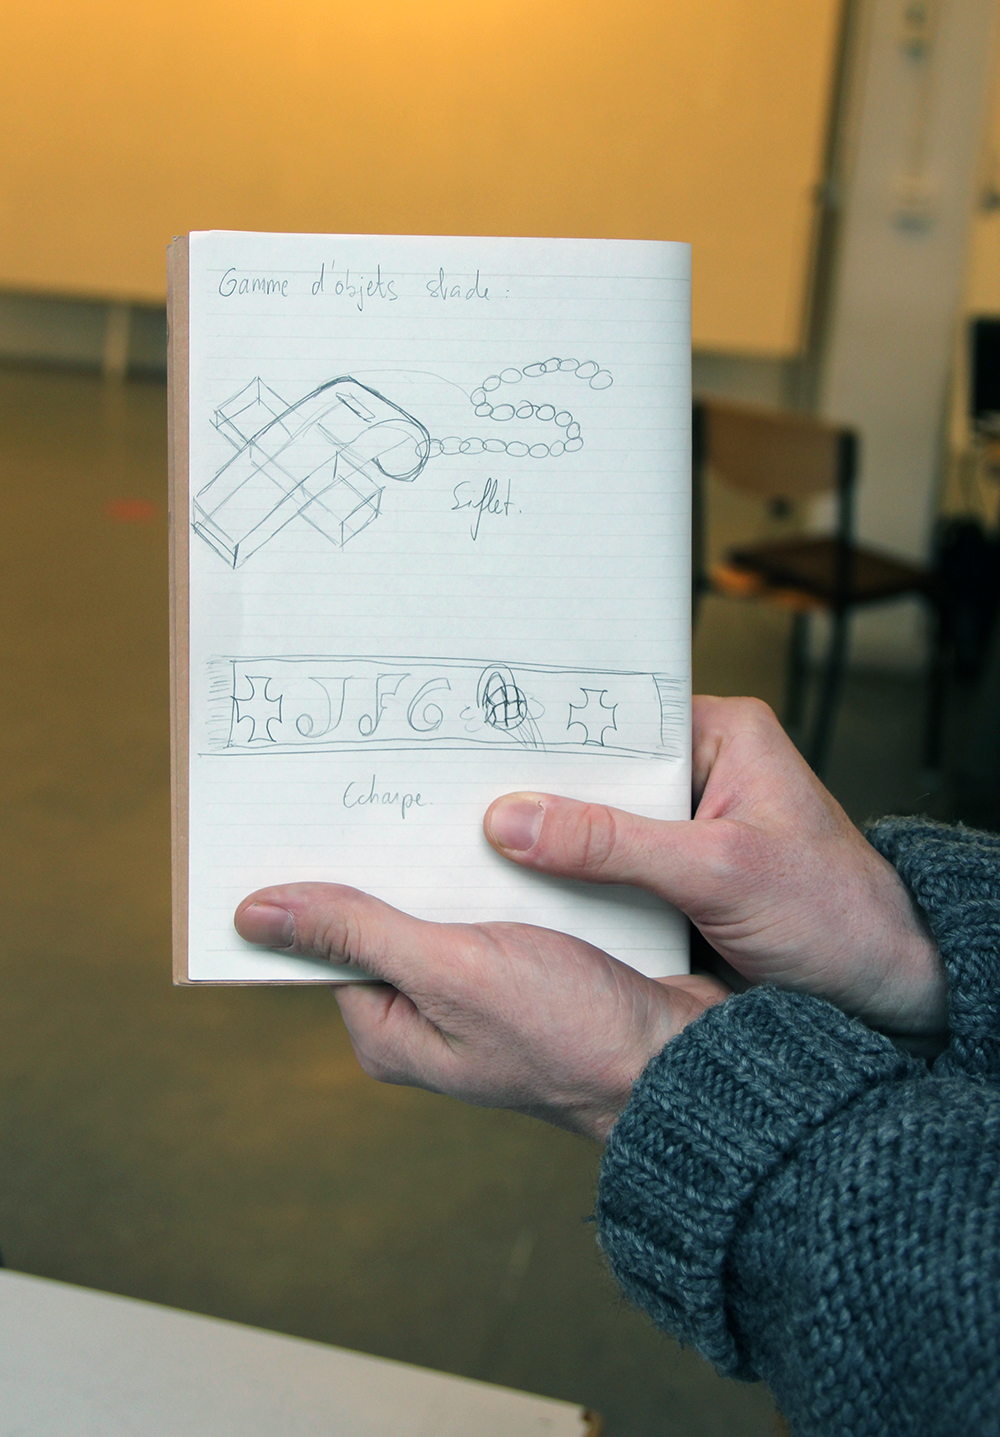 Gamme d'objets stade :
Siflet.
JFC
Echarpe.